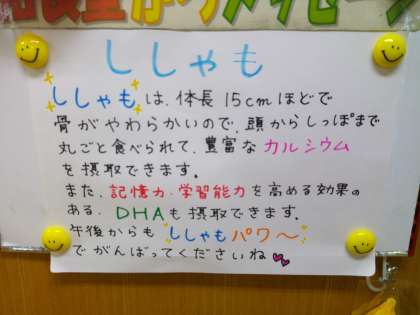 ししゃも
ししゃもは、体長15cmほどで
骨がやわらかいので、頭からしっぽまで
丸ごと食べられて、豊富なカルシウム
を摂取できます。
また、記憶力・学習能力を高める効果の
ある、DHAも摂取できます。
午後からも ししゃもパワ〜
でがんばってくださいね